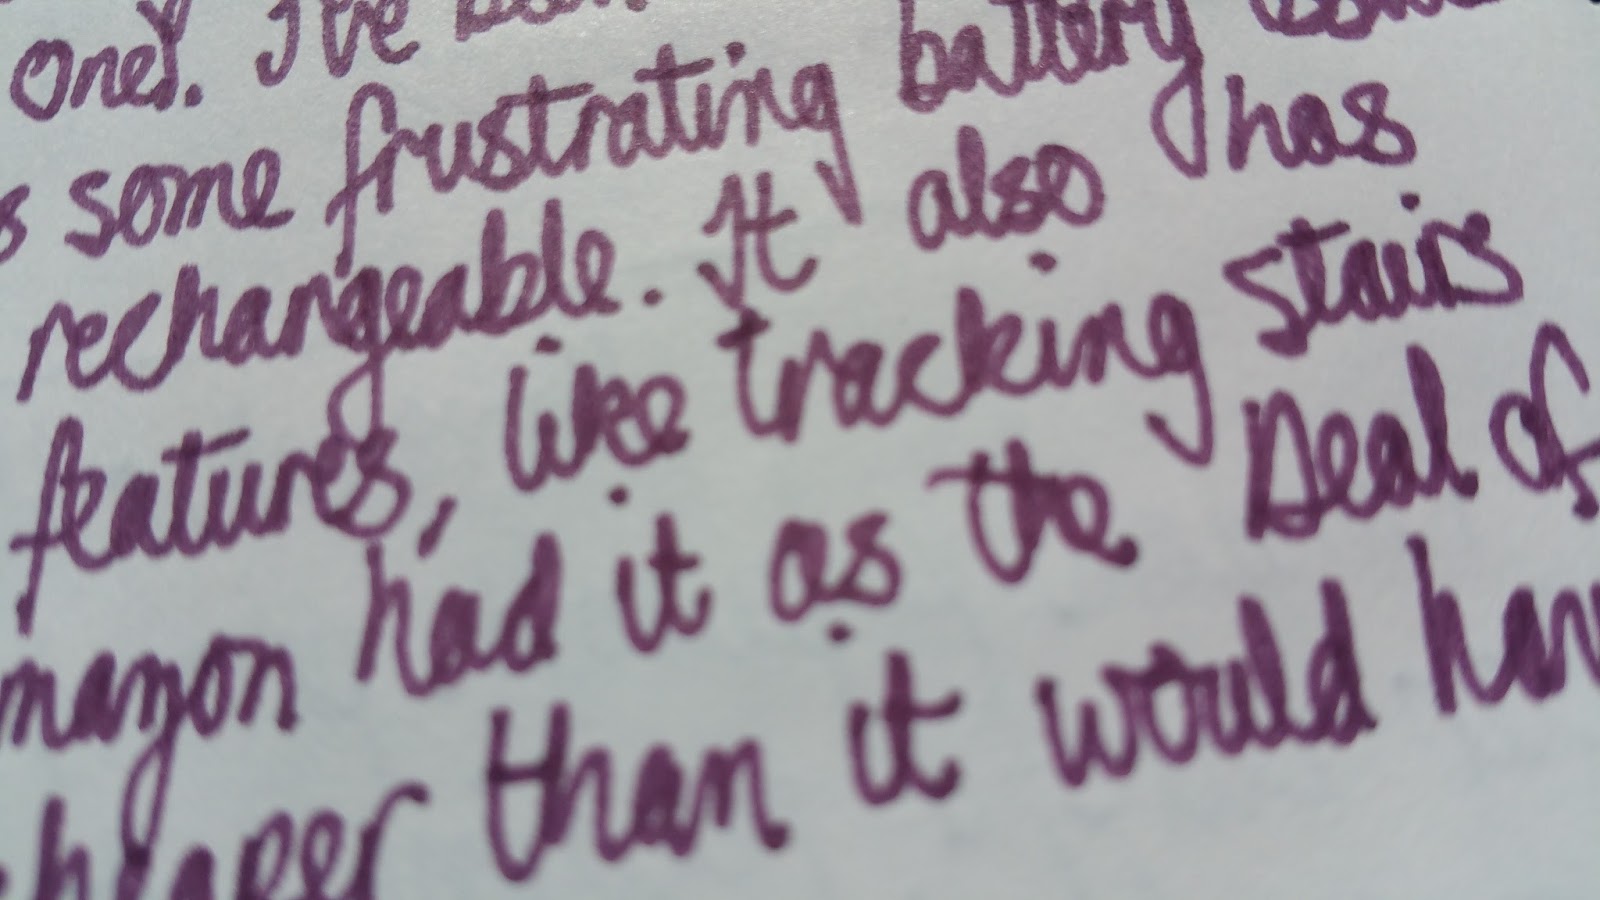 one). I've been
some frustrating battery
rechargeable. It also has
features, like tracking stairs
mazon had it as the Deal of
heaper than it would hav